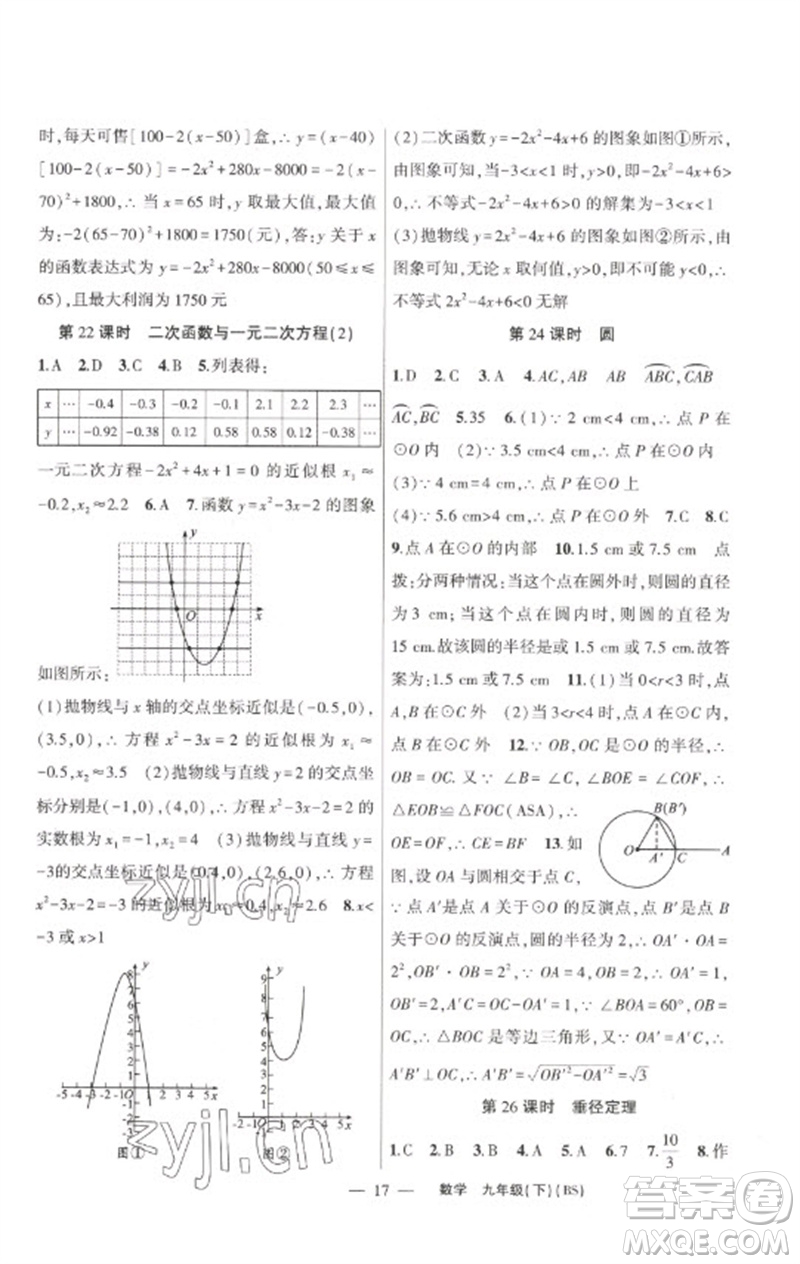 时,每天可售[100-2(x-50)]盒,∴ y=(x-40)
[100-2(x-50)]=-2x²+280x-8000=-2(x-
70)²+1800,∴ 当 x=65 时,y 取最大值,最大值
为:-2(65-70)²+1800=1750(元),答:y 关于 x
的函数表达式为 y=-2x²+280x-8000(50≤x≤
65),且最大利润为 1750 元
第 22 课时 二次函数与一元二次方程(2)
1.A 2.D 3.C 4.B 5.列表得:
x … -0.4 -0.3 -0.2 -0.1 2.1 2.2 2.3 …
y … -0.92 -0.38 0.12 0.58 0.58 0.12 -0.38 …
一元二次方程-2x²+4x+1=0 的近似根 x₁≈
-0.2,x₂≈2.2 6.A 7.函数 y=x²-3x-2 的图象
y
O
x
如图所示:
(1)抛物线与 x 轴的交点坐标近似是(-0.5,0),
(3.5,0),∴ 方程 x²-3x=2 的近似根为 x₁≈
-0.5,x₂≈3.5 (2)抛物线与直线 y=2 的交点坐
标分别是(-1,0),(4,0),∴ 方程 x²-3x-2=2 的
实数根为 x₁=-1,x₂=4 (3)抛物线与直线 y=
-3的交点坐标近似是(0.4,0),(2.6,0),∴ 方程
x²-3x-2=-3 的近似根为 x₁=0.4,x₂=2.6 8.x<
-3 或 x>1
图① 图②
(2)二次函数 y=-2x²-4x+6 的图象如图①所示,
由图象可知,当-3<x<1 时,y>0,即-2x²-4x+6>
0,∴ 不等式-2x²-4x+6>0 的解集为-3<x<1
(3)抛物线 y=2x²-4x+6 的图象如图②所示,由
图象可知,无论 x 取何值,y>0,即不可能 y<0,∴
不等式 2x²-4x+6<0 无解
第 24 课时 圆
1.D 2.C 3.A 4.AC,AB AB ABC,CAB
AC,BC 5.35 6.(1)∵ 2 cm<4 cm,∴ 点 P 在
⊙O 内 (2)∵ 3.5 cm<4 cm,∴ 点 P 在⊙O 内
(3)∵ 4 cm=4 cm,∴ 点 P 在⊙O 上
(4)∵ 5.6 cm>4 cm,∴ 点 P 在⊙O 外 7.C 8.C
9.点 A 在⊙O 的内部 10.1.5 cm 或 7.5 cm 点
拨:分两种情况:当这个点在圆外时,则圆的直径
为 3 cm;当这个点在圆内时,则圆的直径为
15 cm.故该圆的半径是或 1.5 cm 或 7.5 cm.故答
案为:1.5 cm 或 7.5 cm 11.(1)当 0<r<3 时,点
A,B 在⊙C 外 (2)当 3<r<4 时,点 B 在⊙C 内,点
A 在⊙C 外 12.∵ OB,OC 是⊙O 的半径,∴
OB=OC.又∵ ∠B=∠C,∠BOE=∠COF,∴
△EOB≌△FOC(ASA),∴
OE=OF,∴ CE=BF 13.如
图,设 OA 与圆相交于点 C,
B(B′)
O A′ C A
∵ 点A′是点 A 关于⊙O 的反演点,点 B′是点 B
关于⊙O 的反演点,圆的半径为 2,∴ OA′·OA=
2²,OB′·OB=2²,又∵ OB=2,OA=4,∴
OB′=2,A′C=OA′=1,∵ ∠BOA=60°,OB=
OC,∴ △BOC 是等边三角形,又∵ OA′=A′C,∴
A′B′⊥OC,∴ A′B′=√(OB′²-OA′²)=√3
第 26 课时 垂径定理
1.C 2.B 3.B 4.A 5.A 6.27 7.10/3 8.作
— 17 — 数学 九年级(下)(BS)
zyjl.cn
zyjl.cn
答案卷